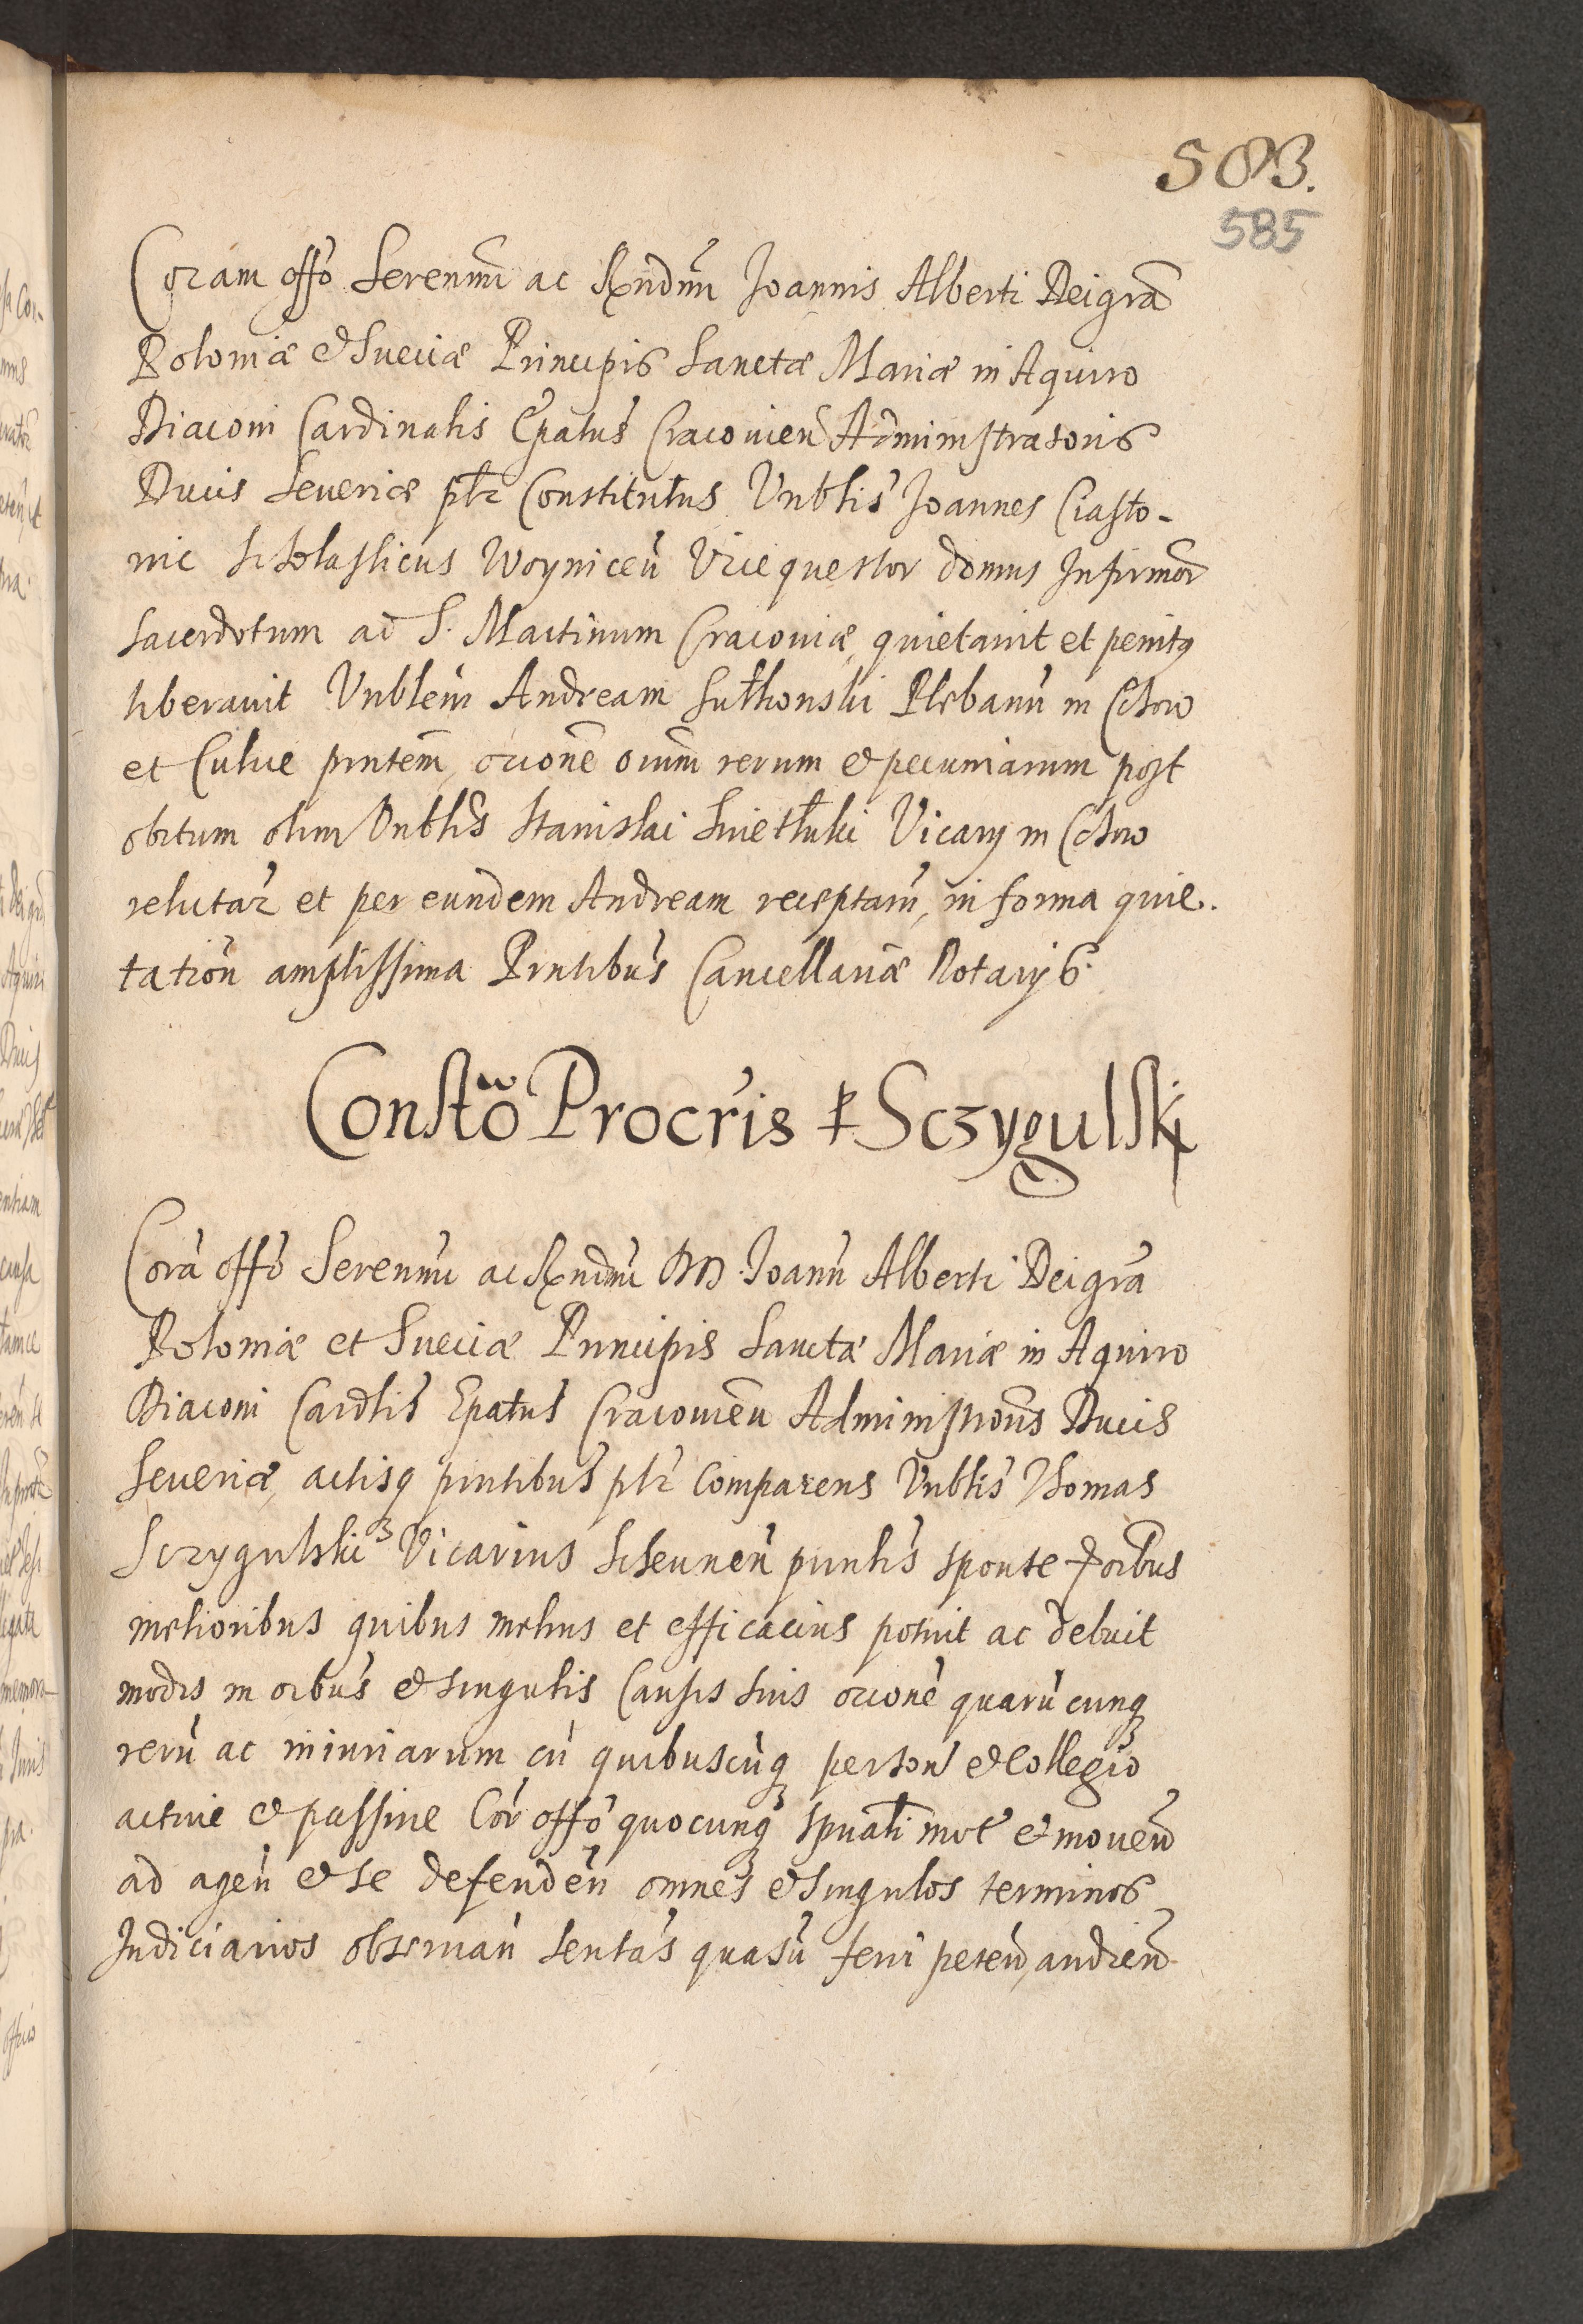 583.
585
Coram offo Serenmi ac Rndmi Joannis Alberti Dei gra
Poloniæ et Sueciæ Principis Sanctæ Mariæ in Aquiro
Diaconi Cardinalis Epatus Cracovien Administratoris
Ducis Severiæ plr Constitutus Vnblis Joannes Ciasto-
nic Scholasticus Woynicen Vicequestor domus Infirmor
Sacerdotum ad S. Martinum Cracoviæ, quietavit et penitq
liberavit Vnblem Andream Plebanu in
et prntem, ocione oium rerum et pecuniarum post
obitum olim Vnblis Stanislai Vicarij in
relictar et per eundem Andream receptaru, in forma quie-
tation amplissima Prntibus Cancellariæ Notarijs.
Constõ Procris P Sczygulski
Cora offo Serenmi ac Rndmi DD. Joann Alberti Dei gra
Poloniæ et Sueciæ Principis Sanctæ Mariæ in Aquiro
Diaconi Cardlis Epatus Cracovien Administrons Ducis
Severiæ, actisq prntibus plr Comparens Vnblis Thomas
Sczygulski Vicarius prntis sponte oibus
melioribus quibus melius et efficacius potuit ac debuit
modis in oibus et singulis Causis suis ocione quarucunq
reru ac iniuriarum cu quibuscuq person et Collegio
active et passive Cor offo quocunq spuali mot et movend
ad agen et se defenden omnes et singulos terminos
Judiciarios observan sentas quasu ferri peten, audien